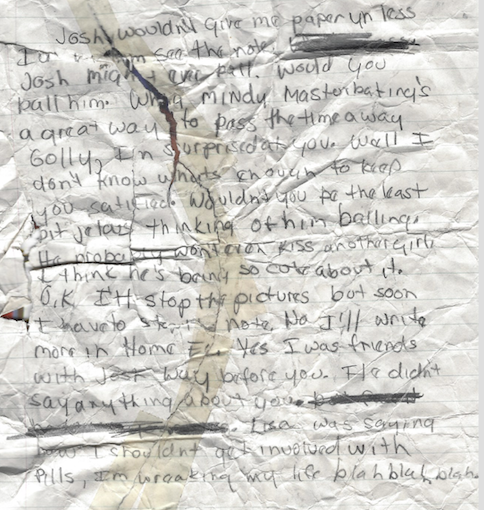 Josh wouldn't give me paper unless
I let him see the note.
Josh might ever ball. Would you
ball him. Why mindy masturbating's
a great way to pass the time away
Golly, I'm surprised at you. Well I
don't know what's enough to keep
you satisfied. Wouldn't you be the least
bit jelous thinking of him balling.
He probably won't even kiss another girl
I think he's being so cute about it.
O.K. I'll stop the pictures but soon
I have to stop note. No I'll write
more in Home Yes I was friends
with Josh way before you. He didn't
say anything about you.
Lisa was saying
how I shouldnt get involved with
pills, I'm wreaking my life blah blah, blah.